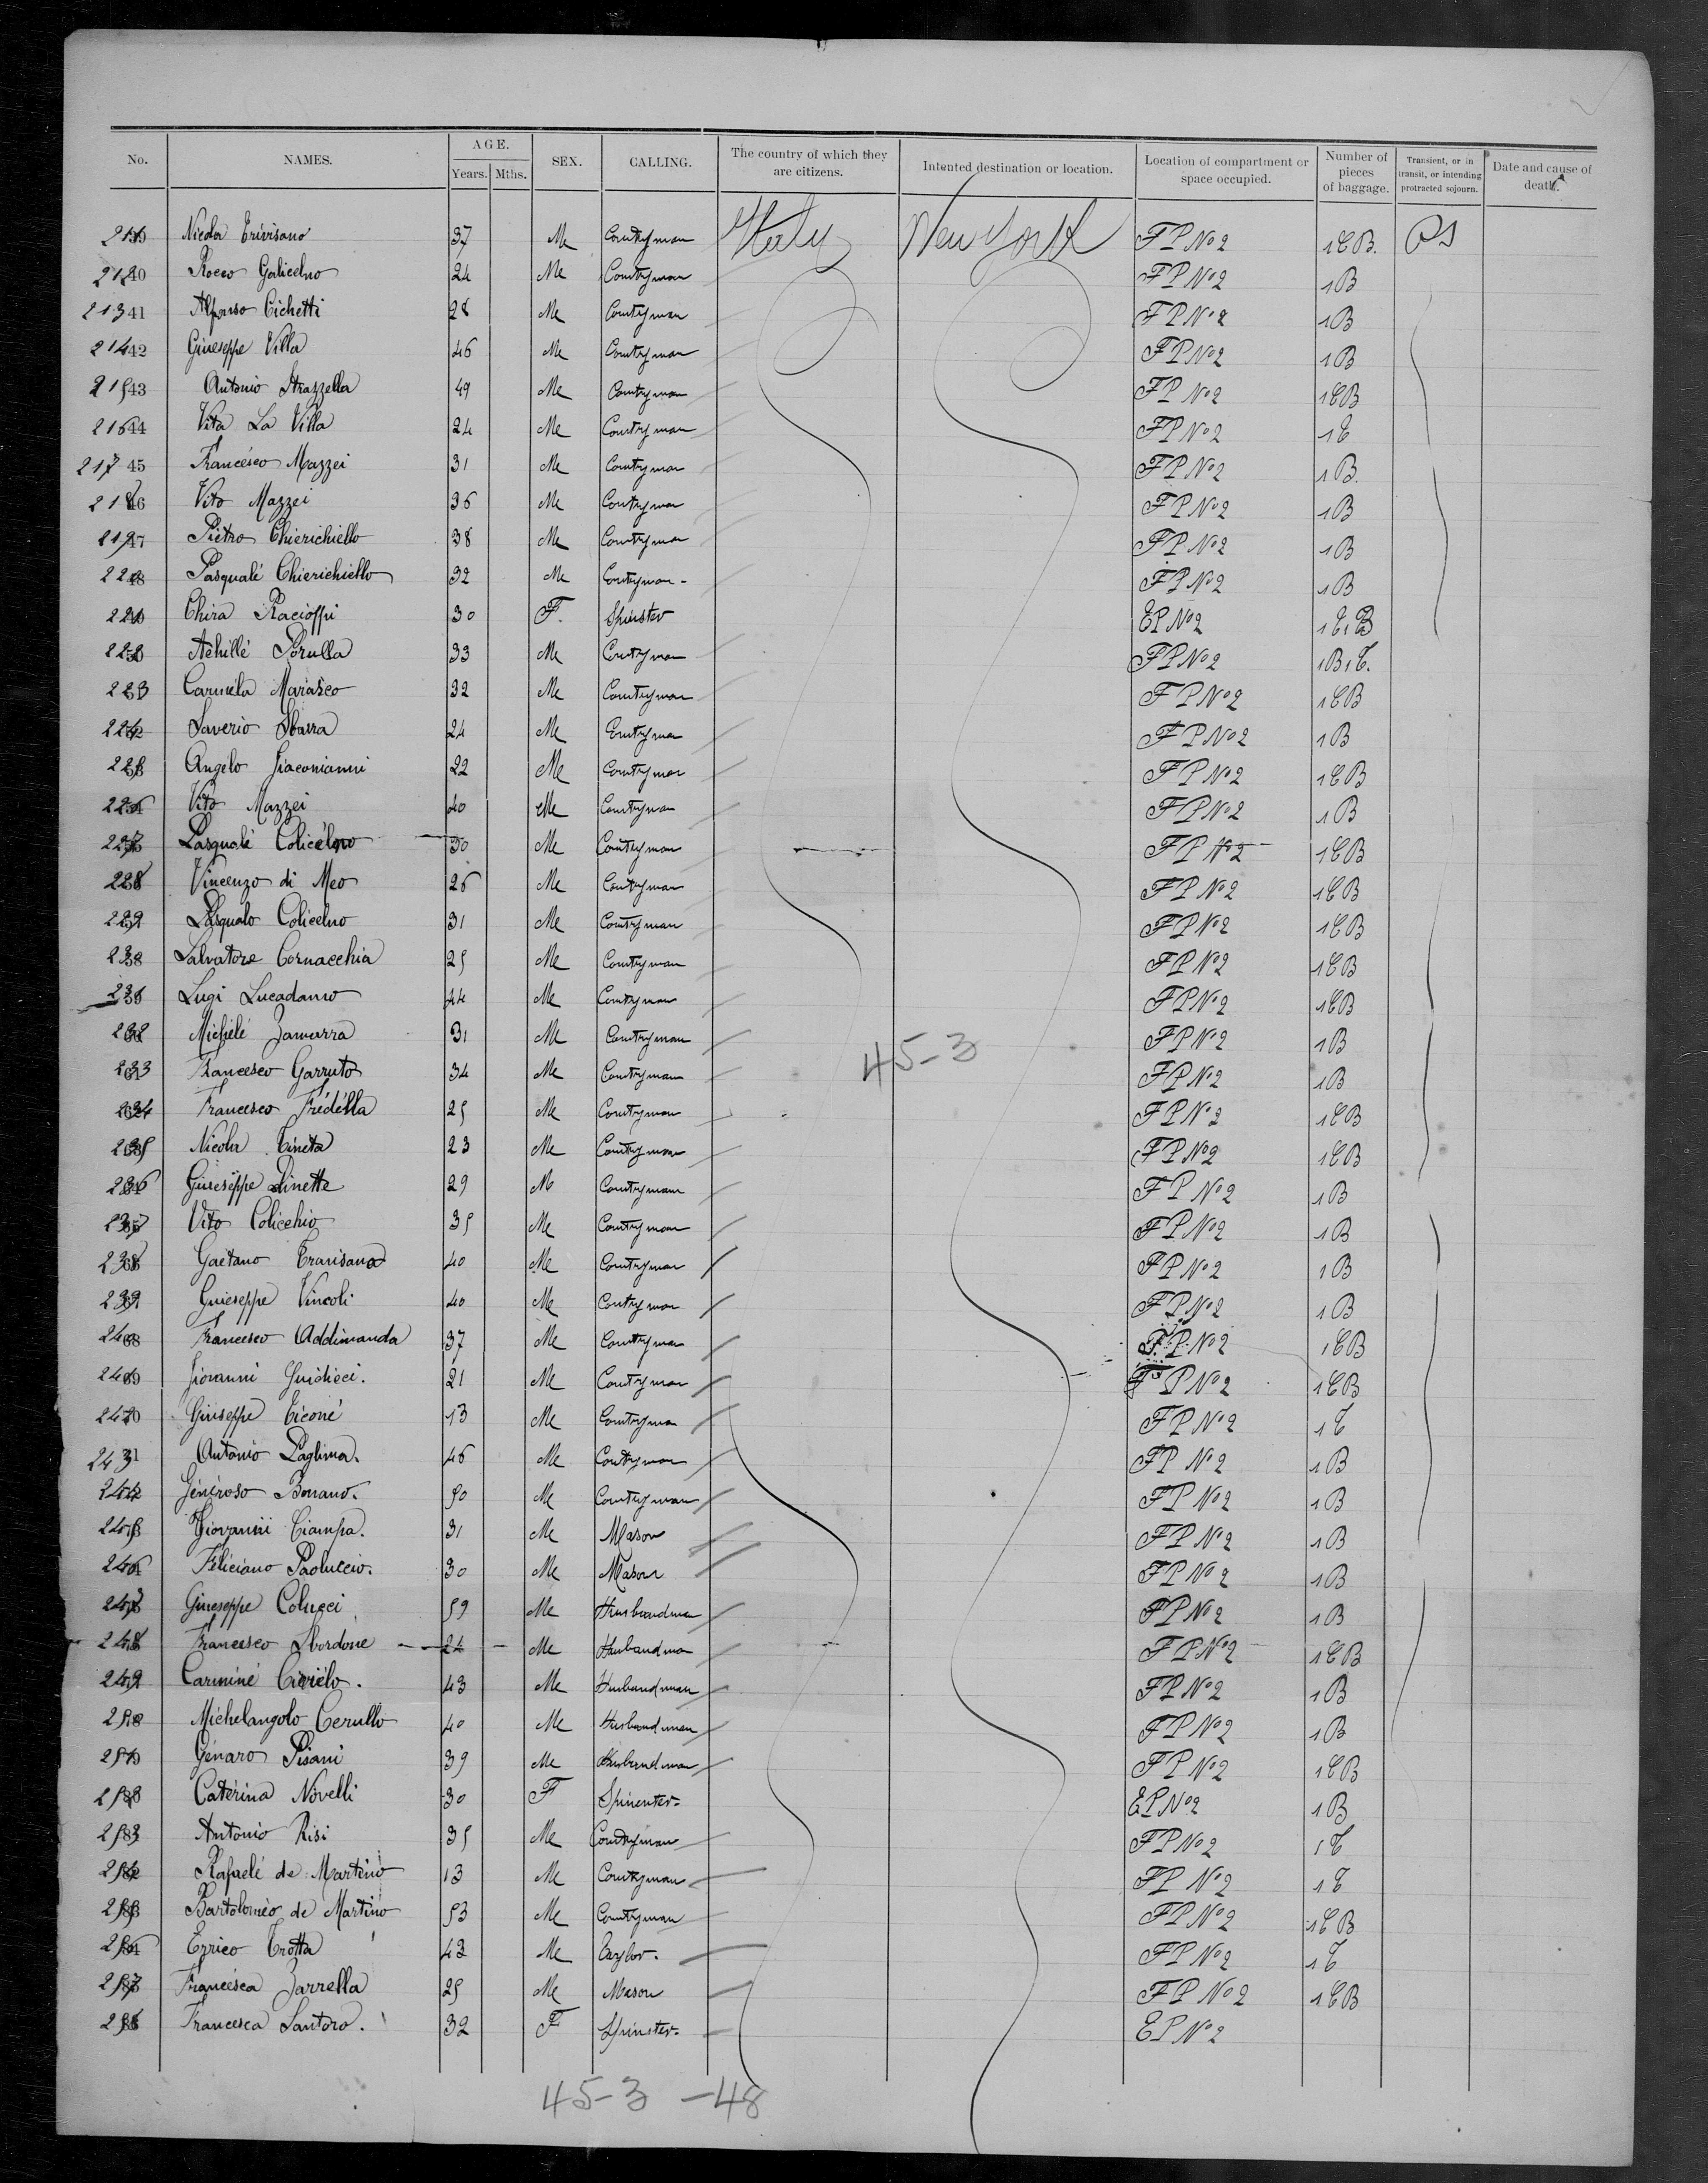 No. NAMES. AGE. Years. Mths. SEX. CALLING. The country of which they are citizens. Intented destination or location. Location of compartment or space occupied. Number of pieces of baggage. Transient, or in transit, or intending protracted sojourn. Date and cause of death.
Nicola Trivisano 37 Me Countryman Italy New York FP No 2 1CB. PS
212 Rocco Galicelno 24 Me Countryman FP No 2 1B
213 41 Alfonso Cichetti 28 Me Countryman FP No 2 1B
214 42 Giuseppe Villa 46 Me Countryman FP No 2 1B
215 43 Antonio Strazzella 49 Me Countryman FP No 2 1CB
216 44 Vita La Villa 24 Me Countryman FP No 2 1C
217 45 Francesco Mazzei 31 Me Countryman FP No 2 1B.
218 46 Vito Mazzei 36 Me Countryman FP No 2 1B
219 47 Pietro Chierichiello 38 Me Countryman FP No 2 1B
220 48 Pasqualé Chierichiello 32 Me Countryman - FP No 2 1B
221 Chira Racioppi 30 F. Spinster EP No 2 1C1B
222 Achillé Porulla 33 Me Countryman FP No 2 1B1C.
223 Carmela Marasco 32 Me Countryman FP No 2 1CB
224 Saverio Sbarra 24 Me Countryman FP No 2 1B
225 Angelo Giaconianni 22 Me Countryman FP No 2 1CB
226 Vito Mazzei 40 Me Countryman FP No 2 1B
227 Pasqualé Colicelno 30 Me Countryman FP No 2 1CB
228 Vincenzo di Meo 26 Me Countryman FP No 2 1CB
229 Pasqualo Colicelno 31 Me Countryman FP No 2 1CB
230 Salvatore Cornacchia 25 Me Countryman FP No 2 1CB
231 Lugi Lucadamo 44 Me Countryman FP No 2 1CB
232 Michélé Zamarra 31 Me Countryman FP No 2 1B
233 Francesco Garruto 34 Me Countryman FP No 2 1B
45-3
234 Francesco Frédélla 25 Me Countryman FP No 2 1CB
235 Nicola Cineta 23 Me Countryman FP No 2 1CB
236 Giuseppe Linette 29 M Countryman FP No 2 1B
237 Vito Colicchio 35 Me Countryman FP No 2 1B
238 Gaetano Travisano 40 Me Countryman FP No 2 1B
239 Guieseppe Vincoli 40 Me Countryman FP No 2 1B
240 68 Francesco Addimanda 37 Me Countryman FP No 2 1CB
241 69 Giovanni Guidicci. 21 Me Countryman FP No 2 1CB
242 70 Giuseppe Ciconé 13 Me Countryman FP No 2 1C
243 Antonio Paglima. 46 Me Countryman FP No 2 1B
244 Généroso Bonano. 50 Me Countryman FP No 2 1B
245 Giovannii Ciampa. 31 Me Mason FP No 2 1B
246 Féliciano Paoluccio. 30 Me Mason FP No 2 1B
247 Giueseppe Colucci 59 Me Husbandman FP No 2 1B
248 Francesco Sbordone 24 Me Husbandman FP No 2 1CB
249 Carminé 43 Me Husbandman FP No 2 1B
250 Michelangolo Cerullo 40 Me Husbandman FP No 2 1B
251 Génaro Pisani 39 Me Husbandman FP No 2 1CB
252 Catérina Novelli 30 F Spinenter- EP No 2 1B
253 Antonio Risi 35 Me Countryman FP No 2 1C
254 Rafaelé de Martino 13 Me Countryman FP No 2 1C
255 Bartoloméo de Martino 53 Me Countryman FP No 2 1CB
256 Errico Trotta 42 Me FP No 2 1C
257 Francésca Zarrella 25 Me Mason FP No 2 1CB
258 Francesca Santoro. 32 F Spinster- EP No 2
45-3 -48